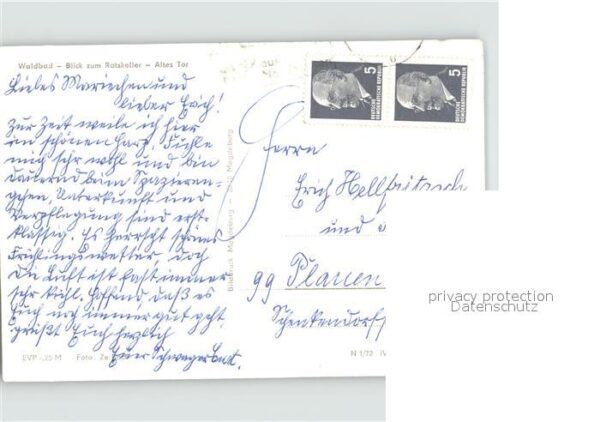 Waldbad – Blick zum Ratskeller – Altes Tor
Liebes Mariechen und
lieber Erich!
Zur Zeit weile ich hier
im schönen Harz. Fühle
mich sehr wohl und bin
dauernd beim Spazieren-
gehen, Unterkunft und
Verpflegung sind erst-
klassig. Es herrscht schönes
Frühlingswetter, doch
die Luft ist fast immer
sehr kühl. Hoffend daß es
Euch noch immer gut geht
grüßt Euch herzlich
Euer Schwager
EVP -,25 M Foto: Ze
Bilddruck Magdeburg Magdeburg
N 1/72 IV
5 DEUTSCHE DEMOKRATISCHE REPUBLIK
5 DEUTSCHE DEMOKRATISCHE REPUBLIK
Herrn
Erich
und
99 Plauen
Schenkendorf
privacy protection
Datenschutz